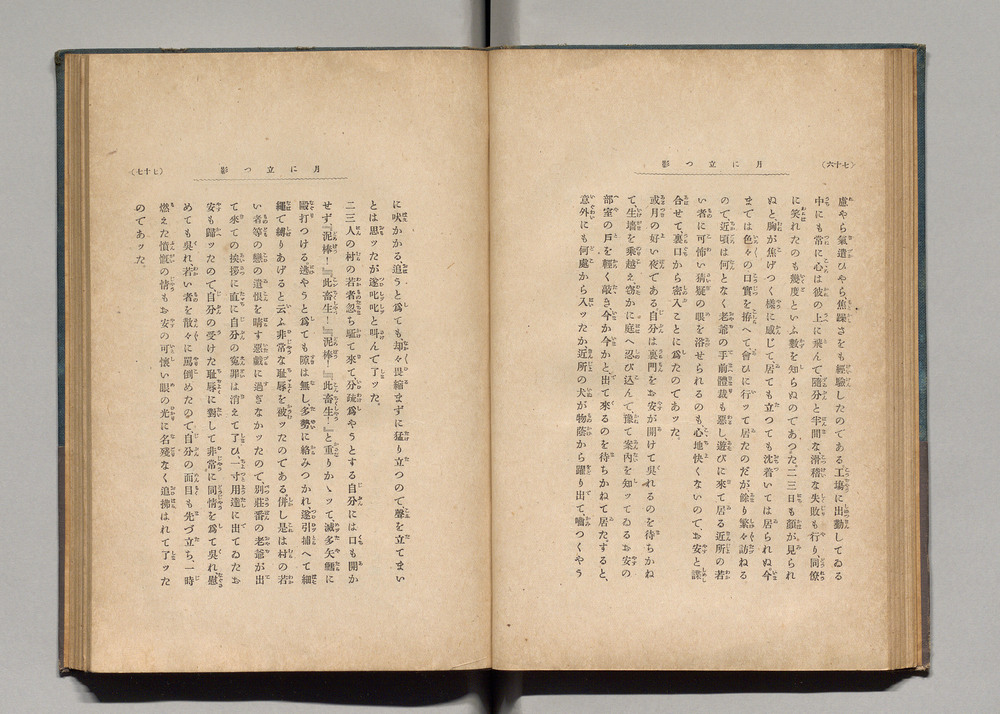 （七十六）
月に立つ影
慮やら氣遣ひやら、焦躁さをも經驗したのである工塲に出勤してゐる
中にも常に心は彼の上に飛んで、隨分と半間な滑稽な失敗も行り、同僚
に笑れたのも幾度といふ數を知らぬのであつた。二三日も顏が見られ
ぬと、胸が焦げつく樣に感じて、居ても立つても沈着いては居られぬ、今
までは色々の口實を拵へて會ひに行ッて居たのだが、餘り繁々訪ねる
ので、近頃は何となく老爺の手前體裁も惡し、遊びに來て居る近所の若
い者に可怖い猜疑の眼を浴せられるのも、心地快くないので、お安と諜
合せて裏口から密入ことに爲たのであッた。
或月の好い夜である自分は裏門をお安が開けて吳れるのを待ちかね
て、生墻を乘越え、窃かに庭へ忍び込んで、豫て案内を知ッてゐるお安の
部室の戸を輕く敲き、今か今かと、出て來るのを待ちかねて居た。すると、
意外にも何處から入ッたか、近所の犬が物蔭から躍り出て、嚙つくやう
月に立つ影
（七十七）
に吠かかる、追うと爲ても却々畏縮まずに猛り立つので聲を立てまい
とは思ッたが遂叱叱と叫んで了ッた。
二三人の村の若者忽ち驅て來て、分疏爲やうとする自分には口も開か
せず『泥棒！』『此畜生！』『泥棒！』『此畜生！』と重りかゝッて滅多矢鱈に
毆打つける逃やうと爲ても隙は無し、多勢に絡みつかれ、遂引捕へて細
繩で縛りあげると云ふ非常な耻辱を被ッたのである。併し是は村の若
い者等の戀の遺恨を晴す惡戯に過ぎなかッたので、別莊番の老爺が出
て來ての挨拶に直に自分の寃罪は消えて了ひ、一寸用達に出てゐたお
安も歸ッたので、自分の受けた耻辱に對して非常に同情を爲て吳れ、慰
めても吳れ若い者を散々に罵倒めたので、自分の面目も先づ立ち、一時
燃えた憤慨の情もお安の可懷い眼の光に名殘なく追拂はれて了ッた
のであッた。